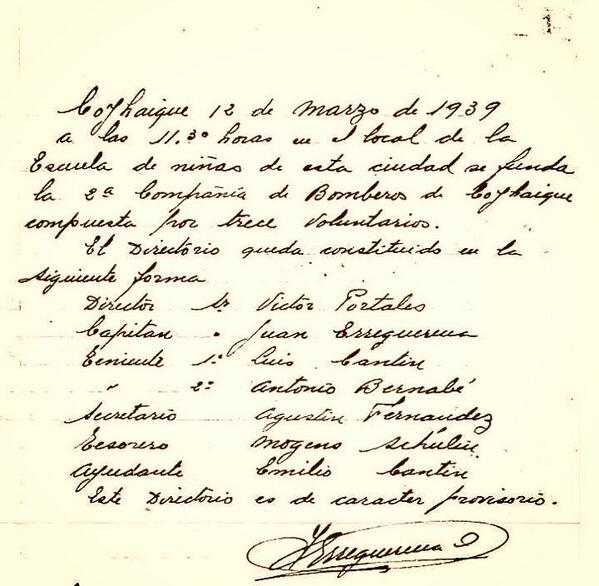 1
Coyhaique 12 de Marzo de 1939
a las 11.30 horas en el local de la
Escuela de niñas de esta ciudad se funda
la 2ª Compañia de Bomberos de Coyhaique
compuesta por trece voluntarios.
El Directorio queda constituido en la
siguiente forma
Director Sr Victor Portales
Capitan " Juan Erreguerena
Teniente 1º Luis Cantin
" 2º Antonio Bernabé
Secretario Agustin Fernandez
Tesorero Mogens Schülin
Ayudante Emilio Cantin
Este Directorio es de caracter provisorio.
JErreguerena